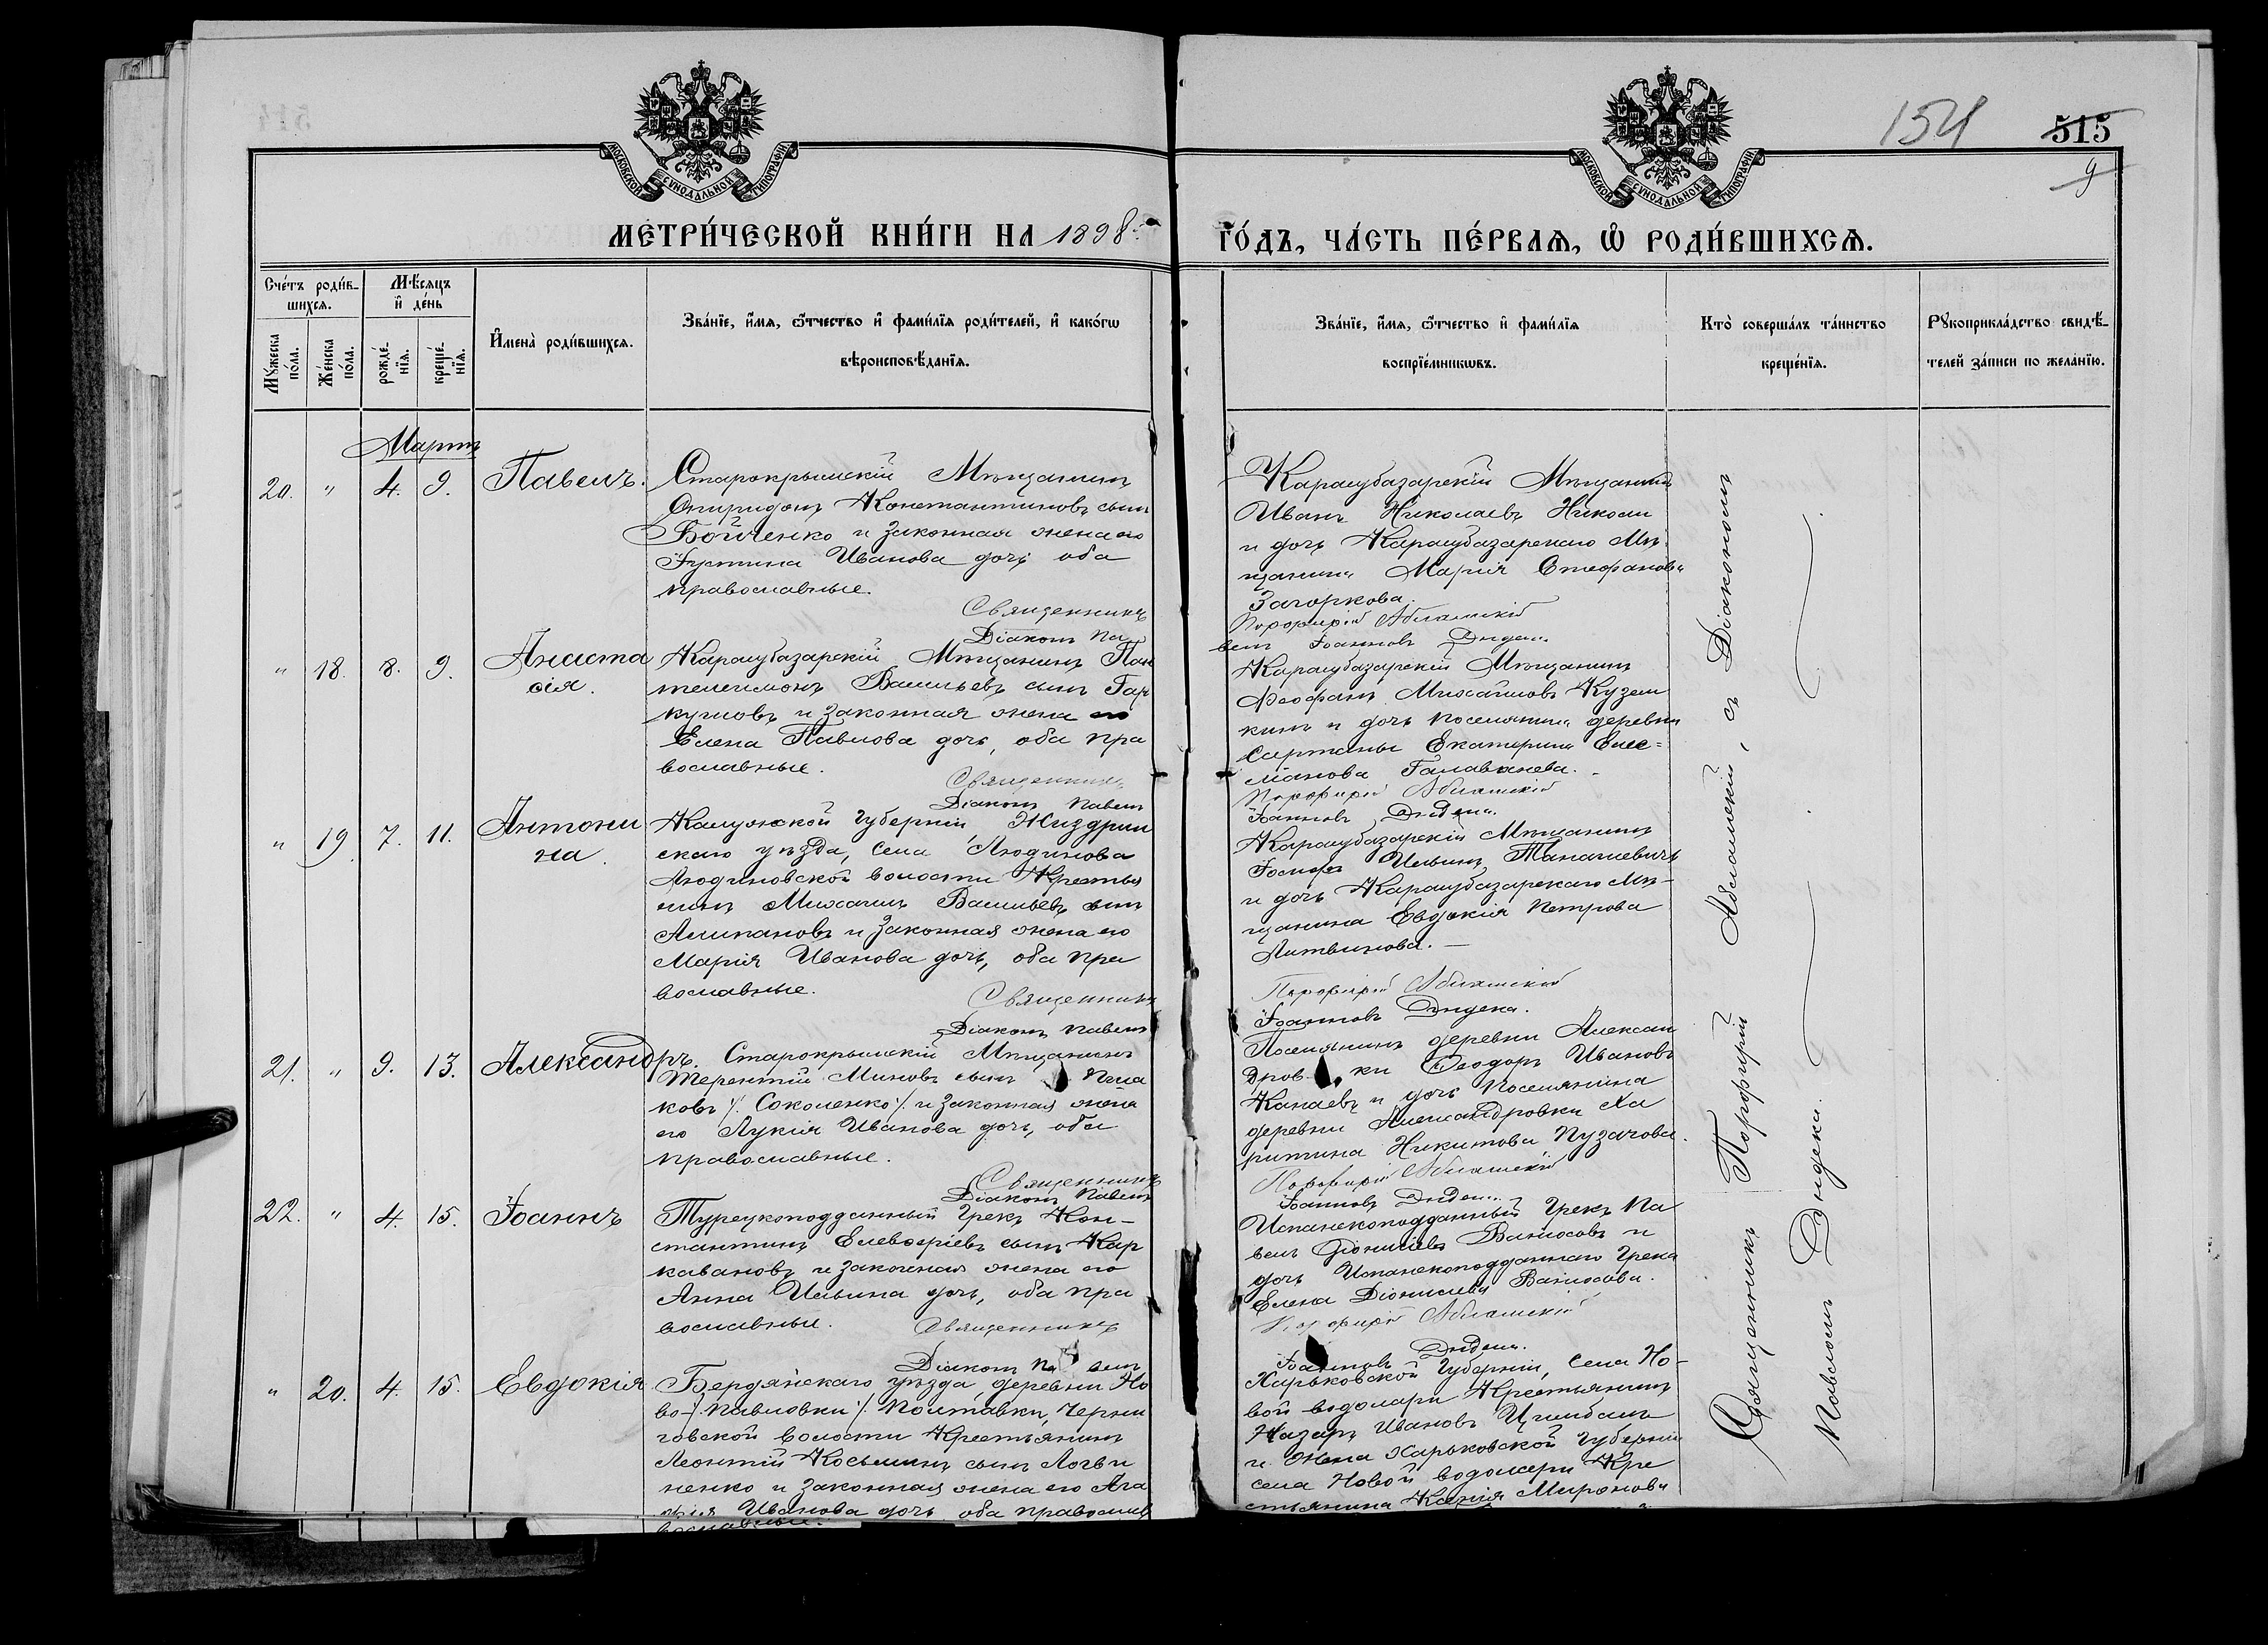 154
515
9
МОСКОВСКОЙ СУНОДАЛЬНОЙ ТИПОГРАФІИ
МОСКОВСКОЙ СУНОДАЛЬНОЙ ТИПОГРАФІИ
МЕТРИ́ЧЕСКОЙ КНИ́ГИ НА 1898
ГО́ДЪ, ЧА́СТЬ ПЕ́РВАѦ, Ѡ РОДИ́ВШИХСѦ.
Сче́тъ роди́в-
шихсѧ.
Мꙋжеска по́ла.
Же́нска по́ла.
Мѣ́сѧцъ
и҆ де́нь
рожде́-
нїѧ.
креще́-
нїѧ.
И҆мена̀ роди́вшихсѧ.
Зва́нїе, и҆́мѧ, ѻ҆́тчество и҆ фами́лїѧ роди́телей, и҆ како́гѡ
вѣроисповѣ́данїѧ.
Зва́нїе, и҆́мѧ, ѻ҆́тчество и҆ фами́лїѧ
воспрїе́мникѡвъ.
Кто̀ соверша́лъ та́инство
креще́нїѧ.
Рꙋкоприкла́дство свидѣ́-
телей за́писи по жела́нїю.
Мартъ
20. " 4. 9. Павелъ.
Старокрымскій Мѣщанинъ
Спиридонъ Константиновъ сынъ
Бойченко и законная жена его
Іустина Иванова дочь оба
православные.
Священникъ
Діаконъ Па
Карасубазарскій Мѣщанинъ
Иванъ Николаевъ Николи
и дочь Карасубазарскаго Мѣ-
щанина Марія Стефанова
Загоркова.
Порфирій Абламскій
велъ Іоанновъ Дидека
" 18. 8. 9. Анаста
сія.
Карасубазарскій Мѣщанинъ Пан
телеимонъ Васильевъ сынъ Гар
кушовъ и законная жена его
Елена Павлова дочь, оба пра
вославные.
Священникъ
Діаконъ Павелъ
Карасубазарскій Мѣщанинъ
Феофанъ Михайловъ Кузем
кинъ и дочь поселянина деревни
Сартаны Екатерина Елее=
манова Галаванева.
Порфирій Абламскій
Іоанновъ Дидека.
" 19. 7. 11. Антони
на.
Калужской губерніи, Жиздрин
скаго уѣзда, села Людинова
Людиновской волости Крестья
нинъ Михаилъ Васильевъ сынъ
Алипановъ и законная жена его
Марія Иванова дочь, оба пра
вославные.
Священникъ
Діаконъ Павелъ
Карасубазарскій Мѣщанинъ
Іосифъ Ильинъ Паначевичъ
и дочь Карасубазарскаго Мѣ-
щанина Евдокія Петрова
Литвинова.
Порфирій Абламскій
Іоанновъ Дидека.
21. " 9. 13. Александръ.
Старокрымскій Мѣщанинъ
Терентій Миновъ сынъ
ковъ /. Соколенко /. и законная жена
его Лукія Иванова дочь, оба
православные.
Священникъ
Діаконъ Павелъ
Поселянинъ деревни Алексан
дров ки Ѳеодоръ Ивановъ
Канаевъ и дочь поселянина
деревни Александровки Ха
ритина Никитова Пузачова.
Порфирій Абламскій
Іоанновъ Дидека
22. " 4. 15. Іоаннъ
Турецкоподданный Грекъ Кон-
стантинъ Елевѳеріевъ сынъ Кар
кавановъ и законная жена его
Анна Ильина дочь, оба пра
вославные.
Священникъ
Діаконъ Па велъ
Испанскоподданный Грекъ Па
велъ Діонисіевъ и
дочь Испанскоподданнаго Грека
Елена Діонисіева
Порфирій Абламскій
Іоанновъ Дидека.
" 20. 4. 15. Евдокія
Бердянскаго уѣзда, деревни Но
во-/. Павловки /. Полтавки, Черни
говской волости Крестьянинъ
Леонтій Косьминъ сынъ Логви
ненко и законная жена его Ага
фія Иванова дочь оба православ
вославные.
Харьковской губерніи, села Но-
вой водолаги Крестьянинъ
Назаръ Ивановъ Цимбалъ
и жена Харьковской губерніи
села Новой водолаги Кре
стьянина Ксенія Миронова
Священникъ Порфирій Абламскій, съ Діакономъ
Павломъ Дидека.